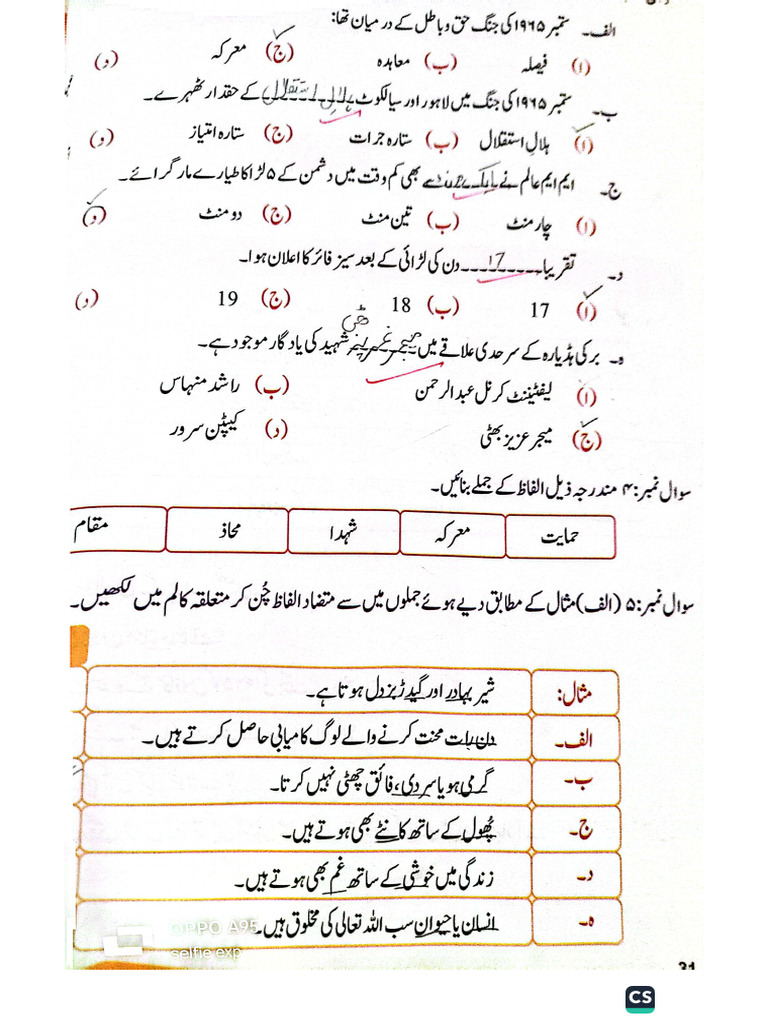 الف۔ ستمبر ۱۹۶۵ کی جنگ حق و باطل کے درمیان تھا:
(ا) فیصلہ (ب) معاہدہ (ج) معرکہ (د)
ب۔ ستمبر ۱۹۶۵ کی جنگ میں لاہور اور سیالکوٹ ہلالِ استقلال کے حقدار ٹھہرے۔
(ا) ہلال استقلال (ب) ستارہ جرات (ج) ستارہ امتیاز (د)
ج۔ ایم ایم عالم نے ایک منٹ سے بھی کم وقت میں دشمن کے ۵ لڑاکا طیارے مار گرائے۔
(ا) چار منٹ (ب) تین منٹ (ج) دو منٹ (د)
د۔ تقریبا 17 دن کی لڑائی کے بعد سیز فائر کا اعلان ہوا۔
(ا) 17 (ب) 18 (ج) 19 (د)
ہ۔ برکی ہڈیارہ کے سرحدی علاقے میں میجر عزیز بھٹی شہید کی یادگار موجود ہے۔
(ا) لیفٹیننٹ کرنل عبدالرحمن (ب) راشد منہاس
(ج) میجر عزیز بھٹی (د) کیپٹن سرور
سوال نمبر: ۴ مندرجہ ذیل الفاظ کے جملے بنائیں۔
حمایت معرکہ شہدا محاذ مقام
سوال نمبر: ۵ (الف) مثال کے مطابق دیے ہوئے جملوں میں سے متضاد الفاظ چُن کر متعلقہ کالم میں لکھیں۔
مثال: شیر بہادر اور گیدڑ بزدل ہوتا ہے۔
الف۔ دن رات محنت کرنے والے لوگ کامیابی حاصل کرتے ہیں۔
ب۔ گرمی ہو یا سردی، فائق چھٹی نہیں کرتا۔
ج۔ پُھول کے ساتھ کانٹے بھی ہوتے ہیں۔
د۔ زندگی میں خوشی کے ساتھ غم بھی ہوتے ہیں۔
ہ۔ انسان یا حیوان سب اللہ تعالی کی مخلوق ہیں۔
OPPO A95
selfie exp
31
CS